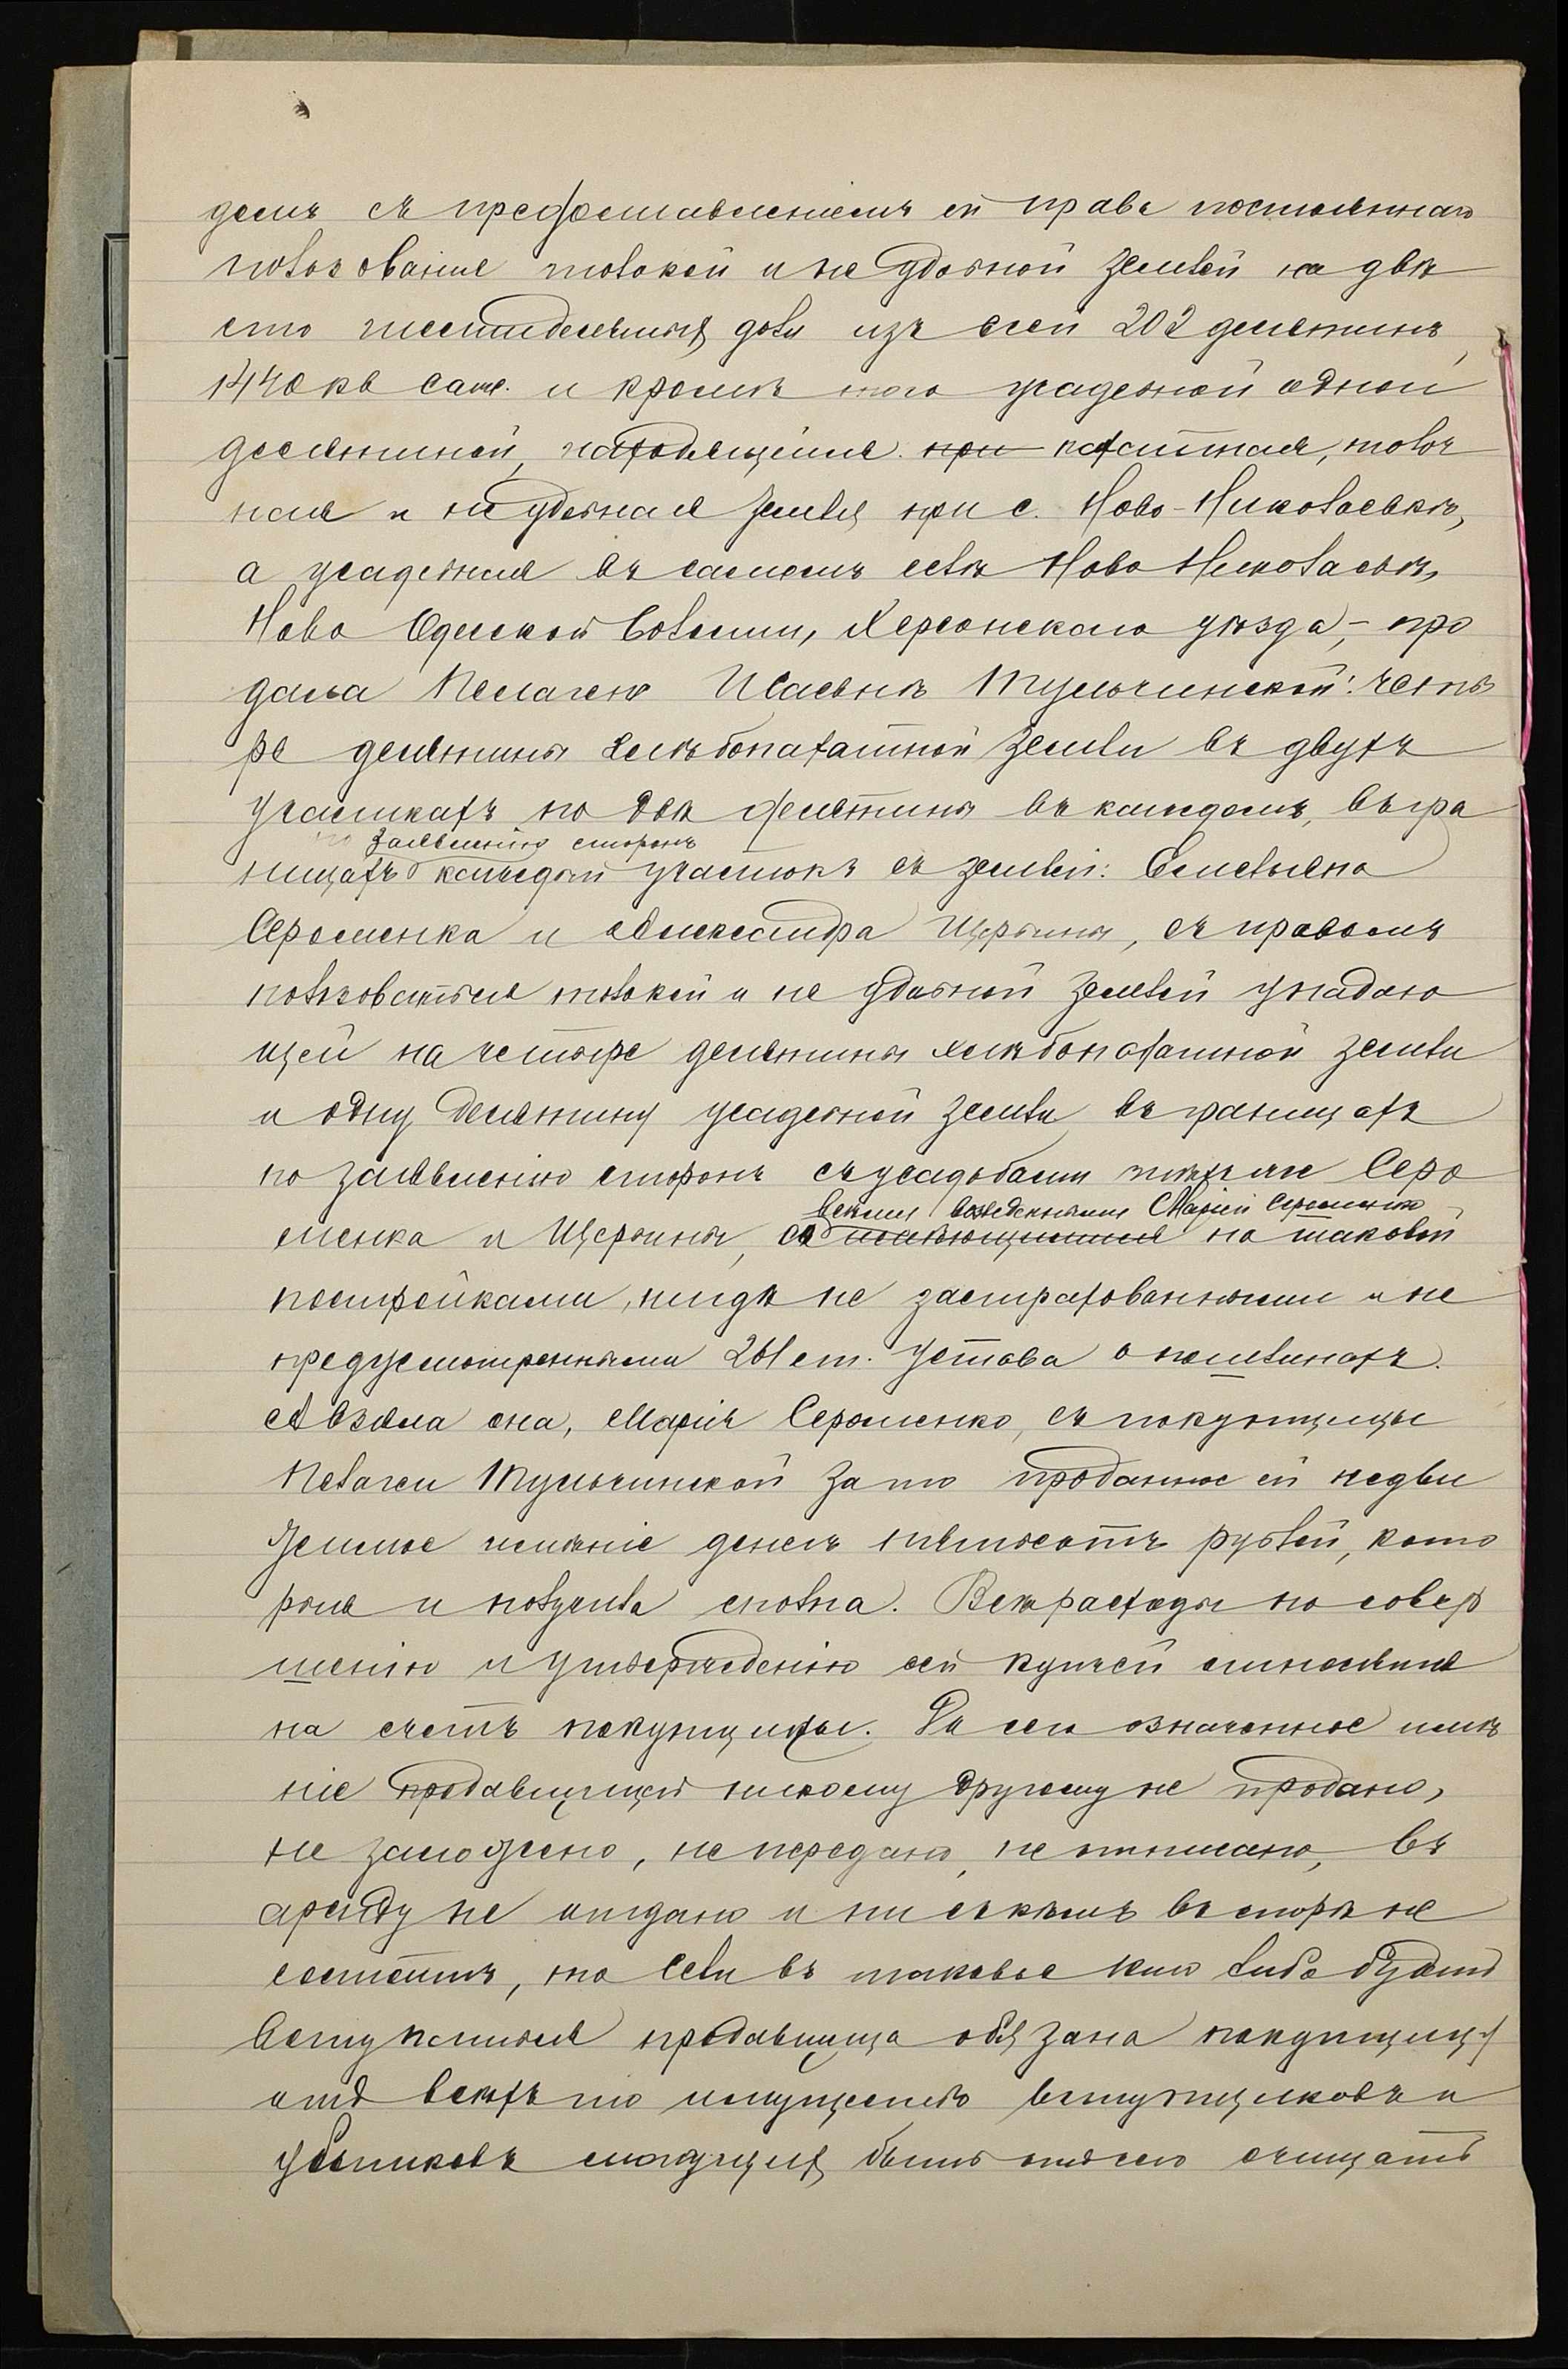 демъ съ предоставленіемъ ей права постояннаго
пользованія толокой и не удобной землей на двѣ
сто шестидесятыя доли изъ всей 202 десятинъ,
1440 кв саж. и кромѣ того усадебной одной
десятиной, находящіяся при пахатная, толоч
ная и неудобная земля при с. Ново-Николаевкѣ,
а усадебная въ самомъ селѣ Ново Николаевкѣ,
Ново Одесской Волости, Херсонскаго уѣзда, – про
дала Пелагею Исаевнѣ Тульчинской: четы
ре десятины хлѣбопахатной земли въ двухъ
участкахъ по двѣ десятины въ каждомъ, въ гра
по заявленію сторонъ
ницахъ каждый участокъ съ землей: Емельяна
Сероменка и Александра Щербины, съ правомъ
пользоваться толокой и не удобной землей упадаю
щей на четыре десятины хлѣбопахатной земли
и одну десятину усадебной земли въ границахъ
по заявленію сторонъ съ усадьбами тѣхъ же Серо
всѣми возведенными Маріей Серименко
менка и Щербины, со имѣющимися на таковой
постройками, нигдѣ не застрахованными и не
предусмотренными 261 ст. Устава о пошлинахъ.
А взяла она, Марія Сероменко, съ покупщицы
Пелагеи Тульчинской за то проданное ей недви
жимое имѣніе денегъ пятьсотъ рублей, кото
рыя и получила сполна. Всѣ расходы по совер
шенію и утвержденію сей купчей относятся
на счетъ покупщицы. До сего означенное имѣ
ніе продавщицей никому другому не продано,
не заложено, не передано, не отписано, въ
аренду не отдано и ни съ кѣмъ въ спорѣ не
состоитъ, то если въ таковое кто либо будетъ
вступаться продавщица обязана покупщицу
отъ всѣхъ то имущество вступщиковъ и
убытковъ могущихъ быть отъ сего очищать